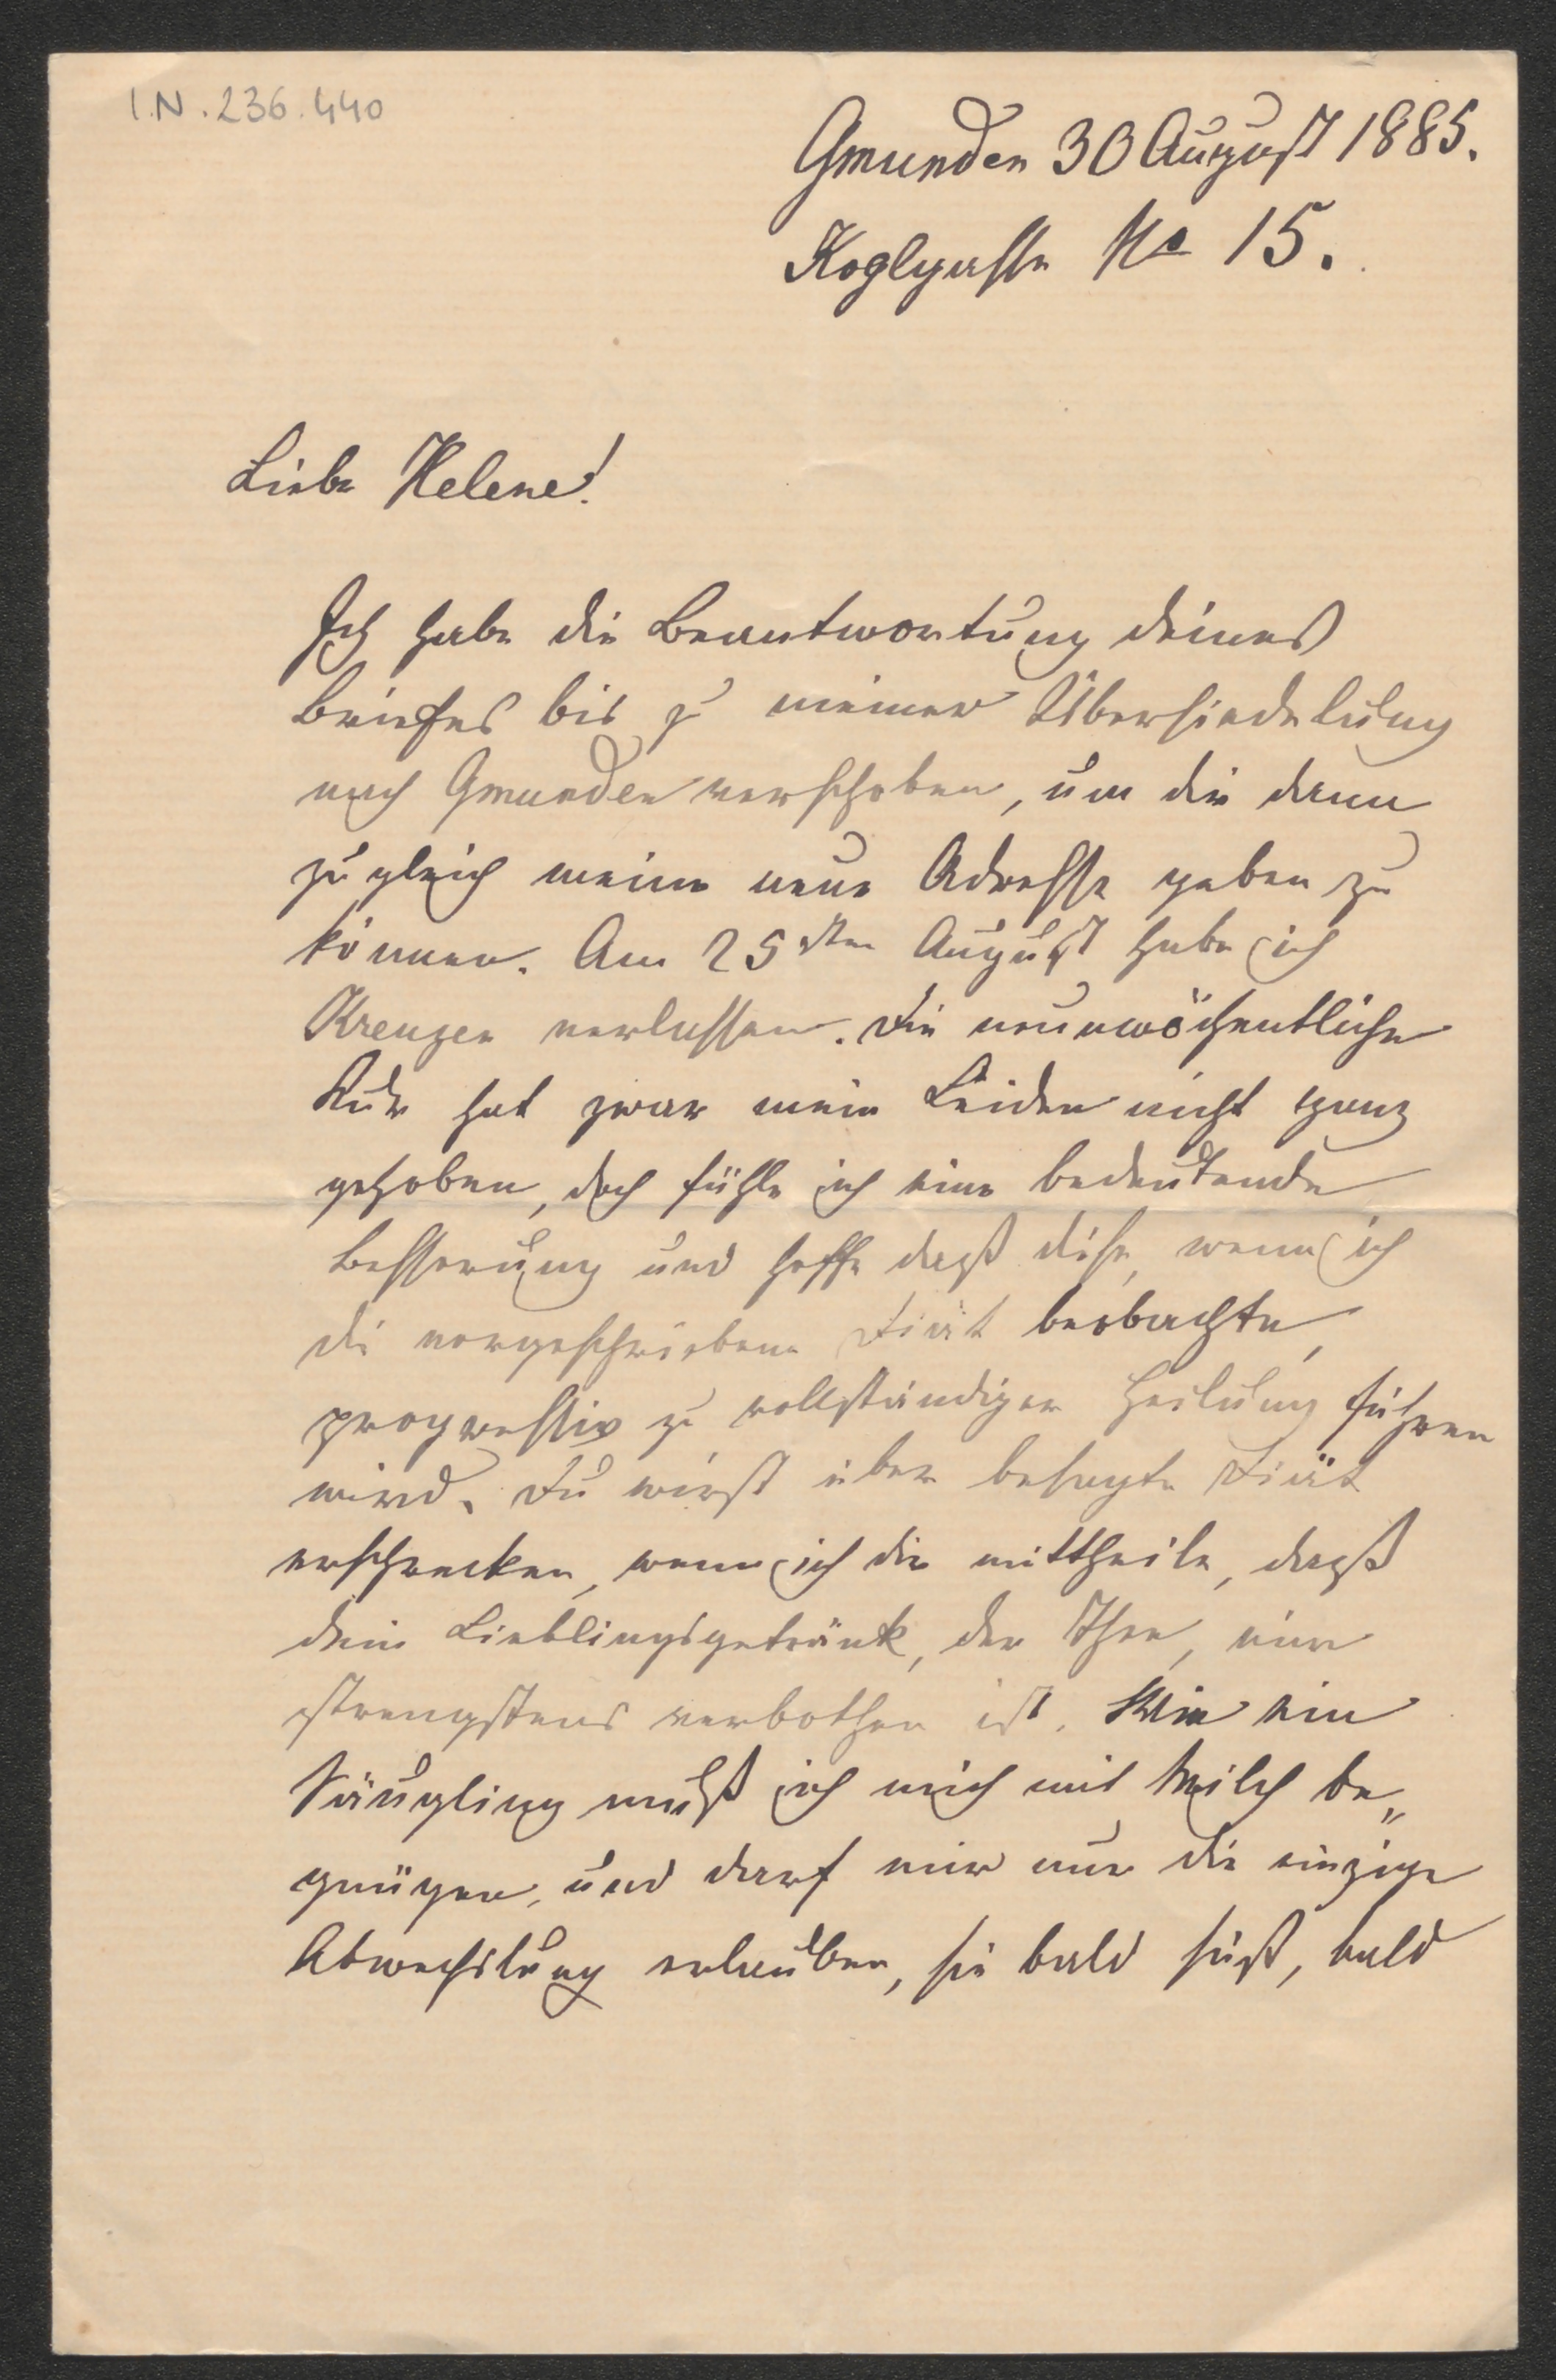 I.N. 236.440
Gmunden 30 August 1885.
Koglgasse No 15.
Liebe Helene!
Ich habe die Beantwortung deines
Briefes bis zu meiner Übersiedelung
nach Gmunden verschoben, um dir dann
zugleich meine neue Adresse geben zu
können. Am 25sten August habe ich
Kreuzen verlassen. Die neunwöchentliche
Kur hat zwar mein Leiden nicht ganz
gehoben, doch fühle ich eine bedeutende
Besserung und hoffe daß diese, wenn ich
die vorgeschriebene Diät beobachte,
progressiv zu vollständiger Heilung führen
wird. Du wirst über besagte Diät
erschrecken, wenn ich dir mittheile, daß
dein Lieblingsgetränk, der Thee, mir
strengstens verbothen ist. Wie ein
Säugling muß ich mich mit Milch be„
gnügen, und darf mir nur die einzige
Abwechslung erlauben, sie bald süß, bald